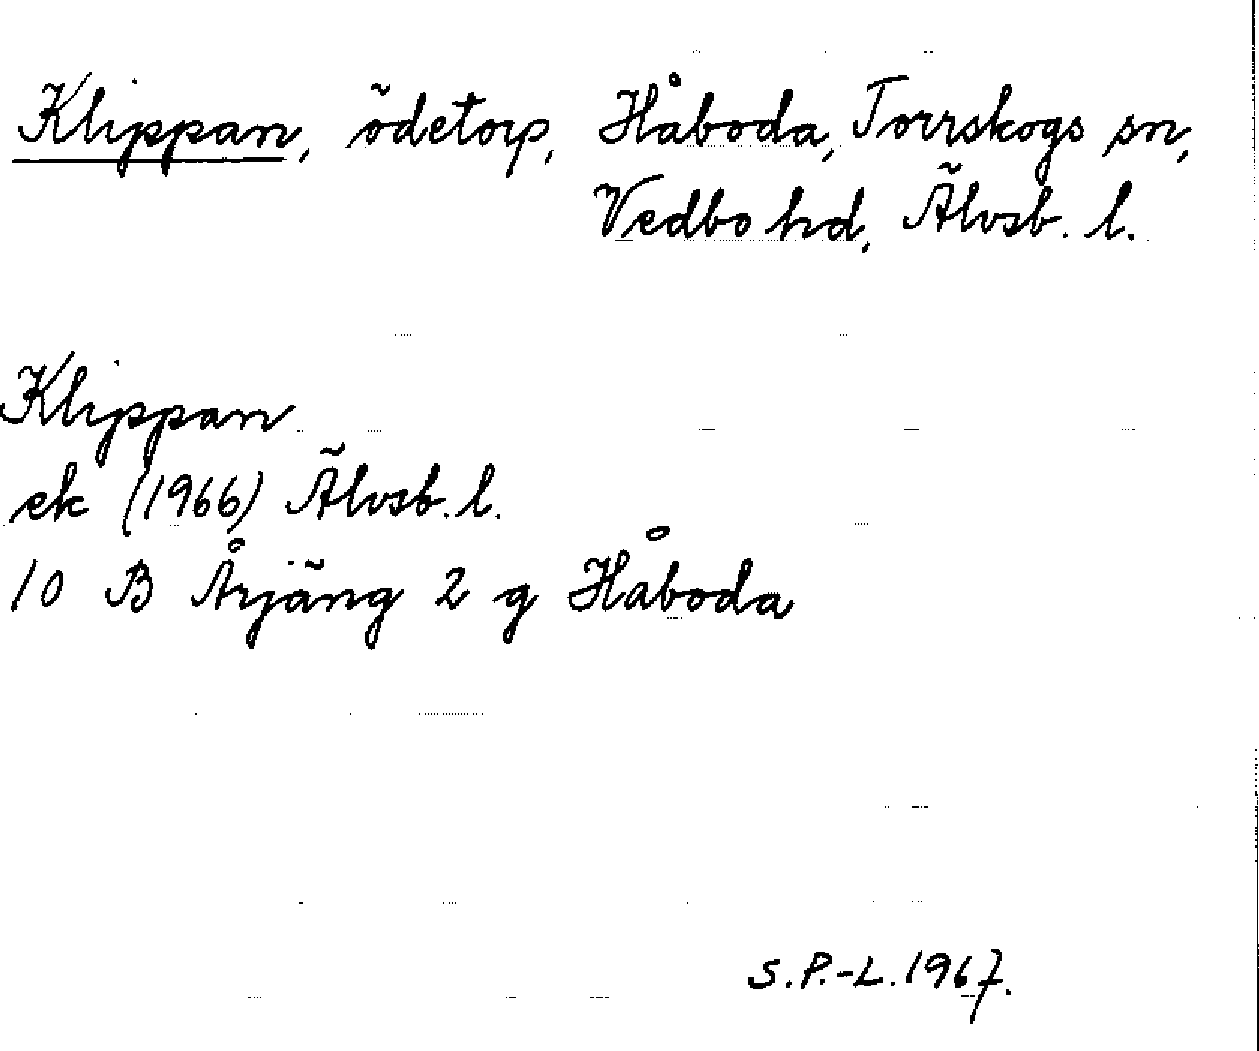 Klippan, ödetorp, Håboda, Torrskogs sn,
Vedbo hd, Älvsb. l.
Klippan
ek (1966) Älvsb. l.
10 B Årjäng 2 g Håboda
S.P.-L. 1967.